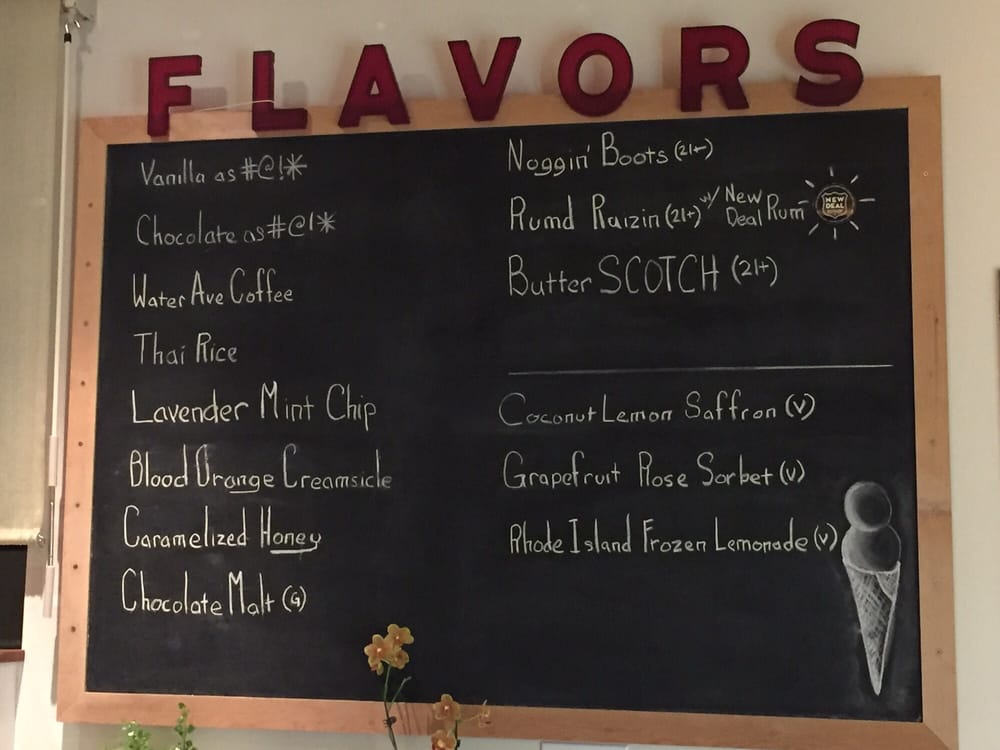 FLAVORS
Vanilla as #@!*
Chocolate as #@!*
Water Ave Coffee
Thai Rice
Lavender Mint Chip
Blood Orange Creamsicle
Caramelized Honey
Chocolate Malt (G)
Noggin' Boots (21+)
Rumd Raizin (21+) w/ New Deal Rum
NEW DEAL
Butter SCOTCH (21+)
Coconut Lemon Saffron (V)
Grapefruit Rose Sorbet (V)
Rhode Island Frozen Lemonade (V)